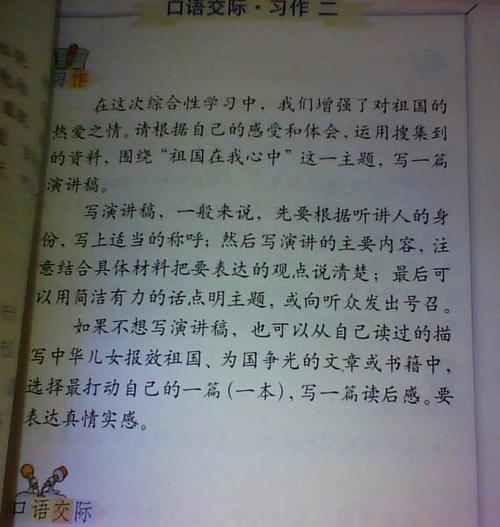 口语交际·习作 二
习作
在这次综合性学习中，我们增强了对祖国的
热爱之情。请根据自己的感受和体会，运用搜集到
的资料，围绕“祖国在我心中”这一主题，写一篇
演讲稿。
写演讲稿，一般来说，先要根据听讲人的身
份，写上适当的称呼；然后写演讲的主要内容，注
意结合具体材料把要表达的观点说清楚；最后可
以用简洁有力的话点明主题，或向听众发出号召。
如果不想写演讲稿，也可以从自己读过的描
写中华儿女报效祖国、为国争光的文章或书籍中，
选择最打动自己的一篇(一本)，写一篇读后感。要
表达真情实感。
口语交际